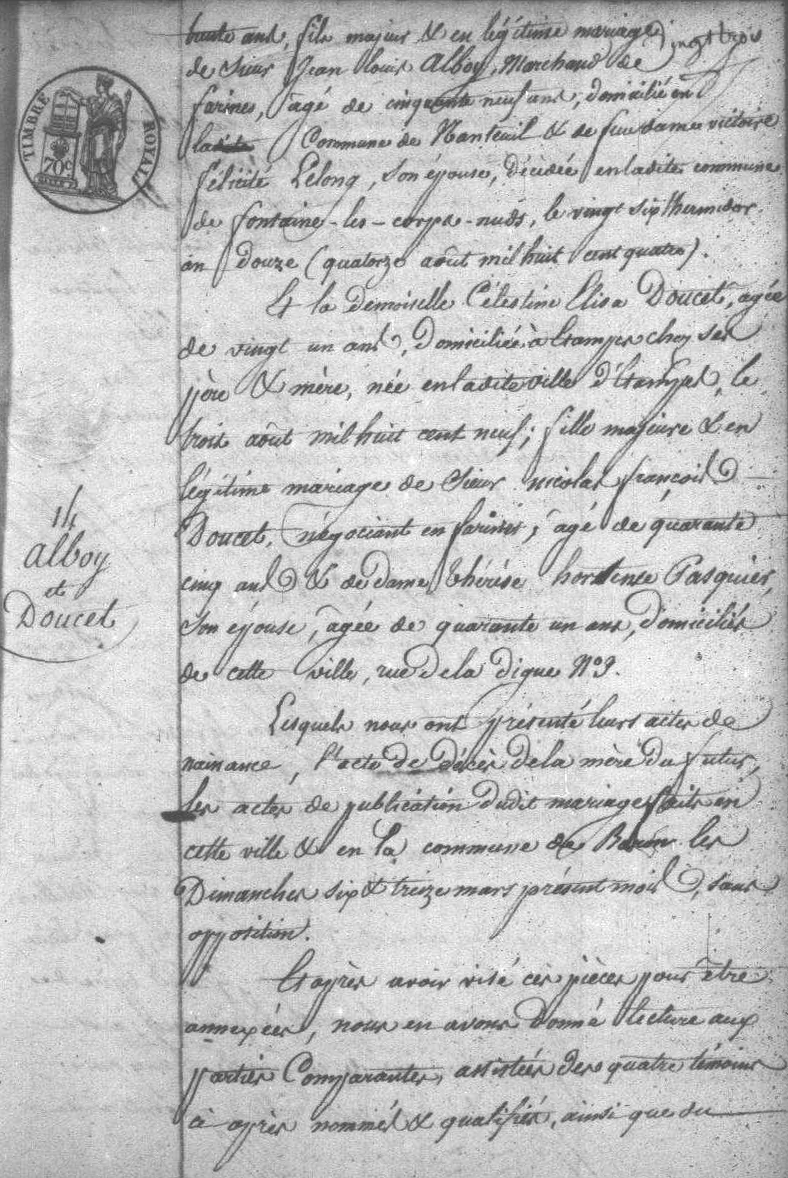 trente ans, fils majeur & en légitime mariage vingt trois
de Sieur Jean Louis Alboy, Marchand de
farines, âgé de cinquante neuf ans, domicilié en
ladite Commune de Nanteuil & de feue dame victoire
félicité Lelong, son épouse, décédée en ladite commune
de fontaine-les-corps-nuds, le vingt six thermidor
an douze (quatorze août mil huit cent quatre).
Et la demoiselle Célestine Elisa Doucet, agée
de vingt un ans, domiciliée à Etampes chez ses
père & mère, née en ladite ville d'Etampes, le
trois août mil huit cent neuf; fille majeure & en
légitime mariage de Sieur nicolas françois
Doucet, négociant en farines, âgé de quarante
cinq ans & de dame thérèse hortence Pasquier,
Son épouse, âgée de quarante un ans, domiciliés
de cette ville, rue de la digue N° 9.
Lesquels nous ont présenté leurs actes de
naissance, l'acte de décès de la mère du futur,
les actes de publication dudit mariage faits en
cette ville & en la commune de Baron les
Dimanches six & treize mars présent mois, sans
opposition.
Et après avoir visé ces pièces pour être
annexées, nous en avons donné lecture aux
parties Comparantes, assistées des quatre témoins
ci après nommés & qualifiés, ainsi que du
TIMBRE ROYAL
70c
14
Alboy
et
Doucet